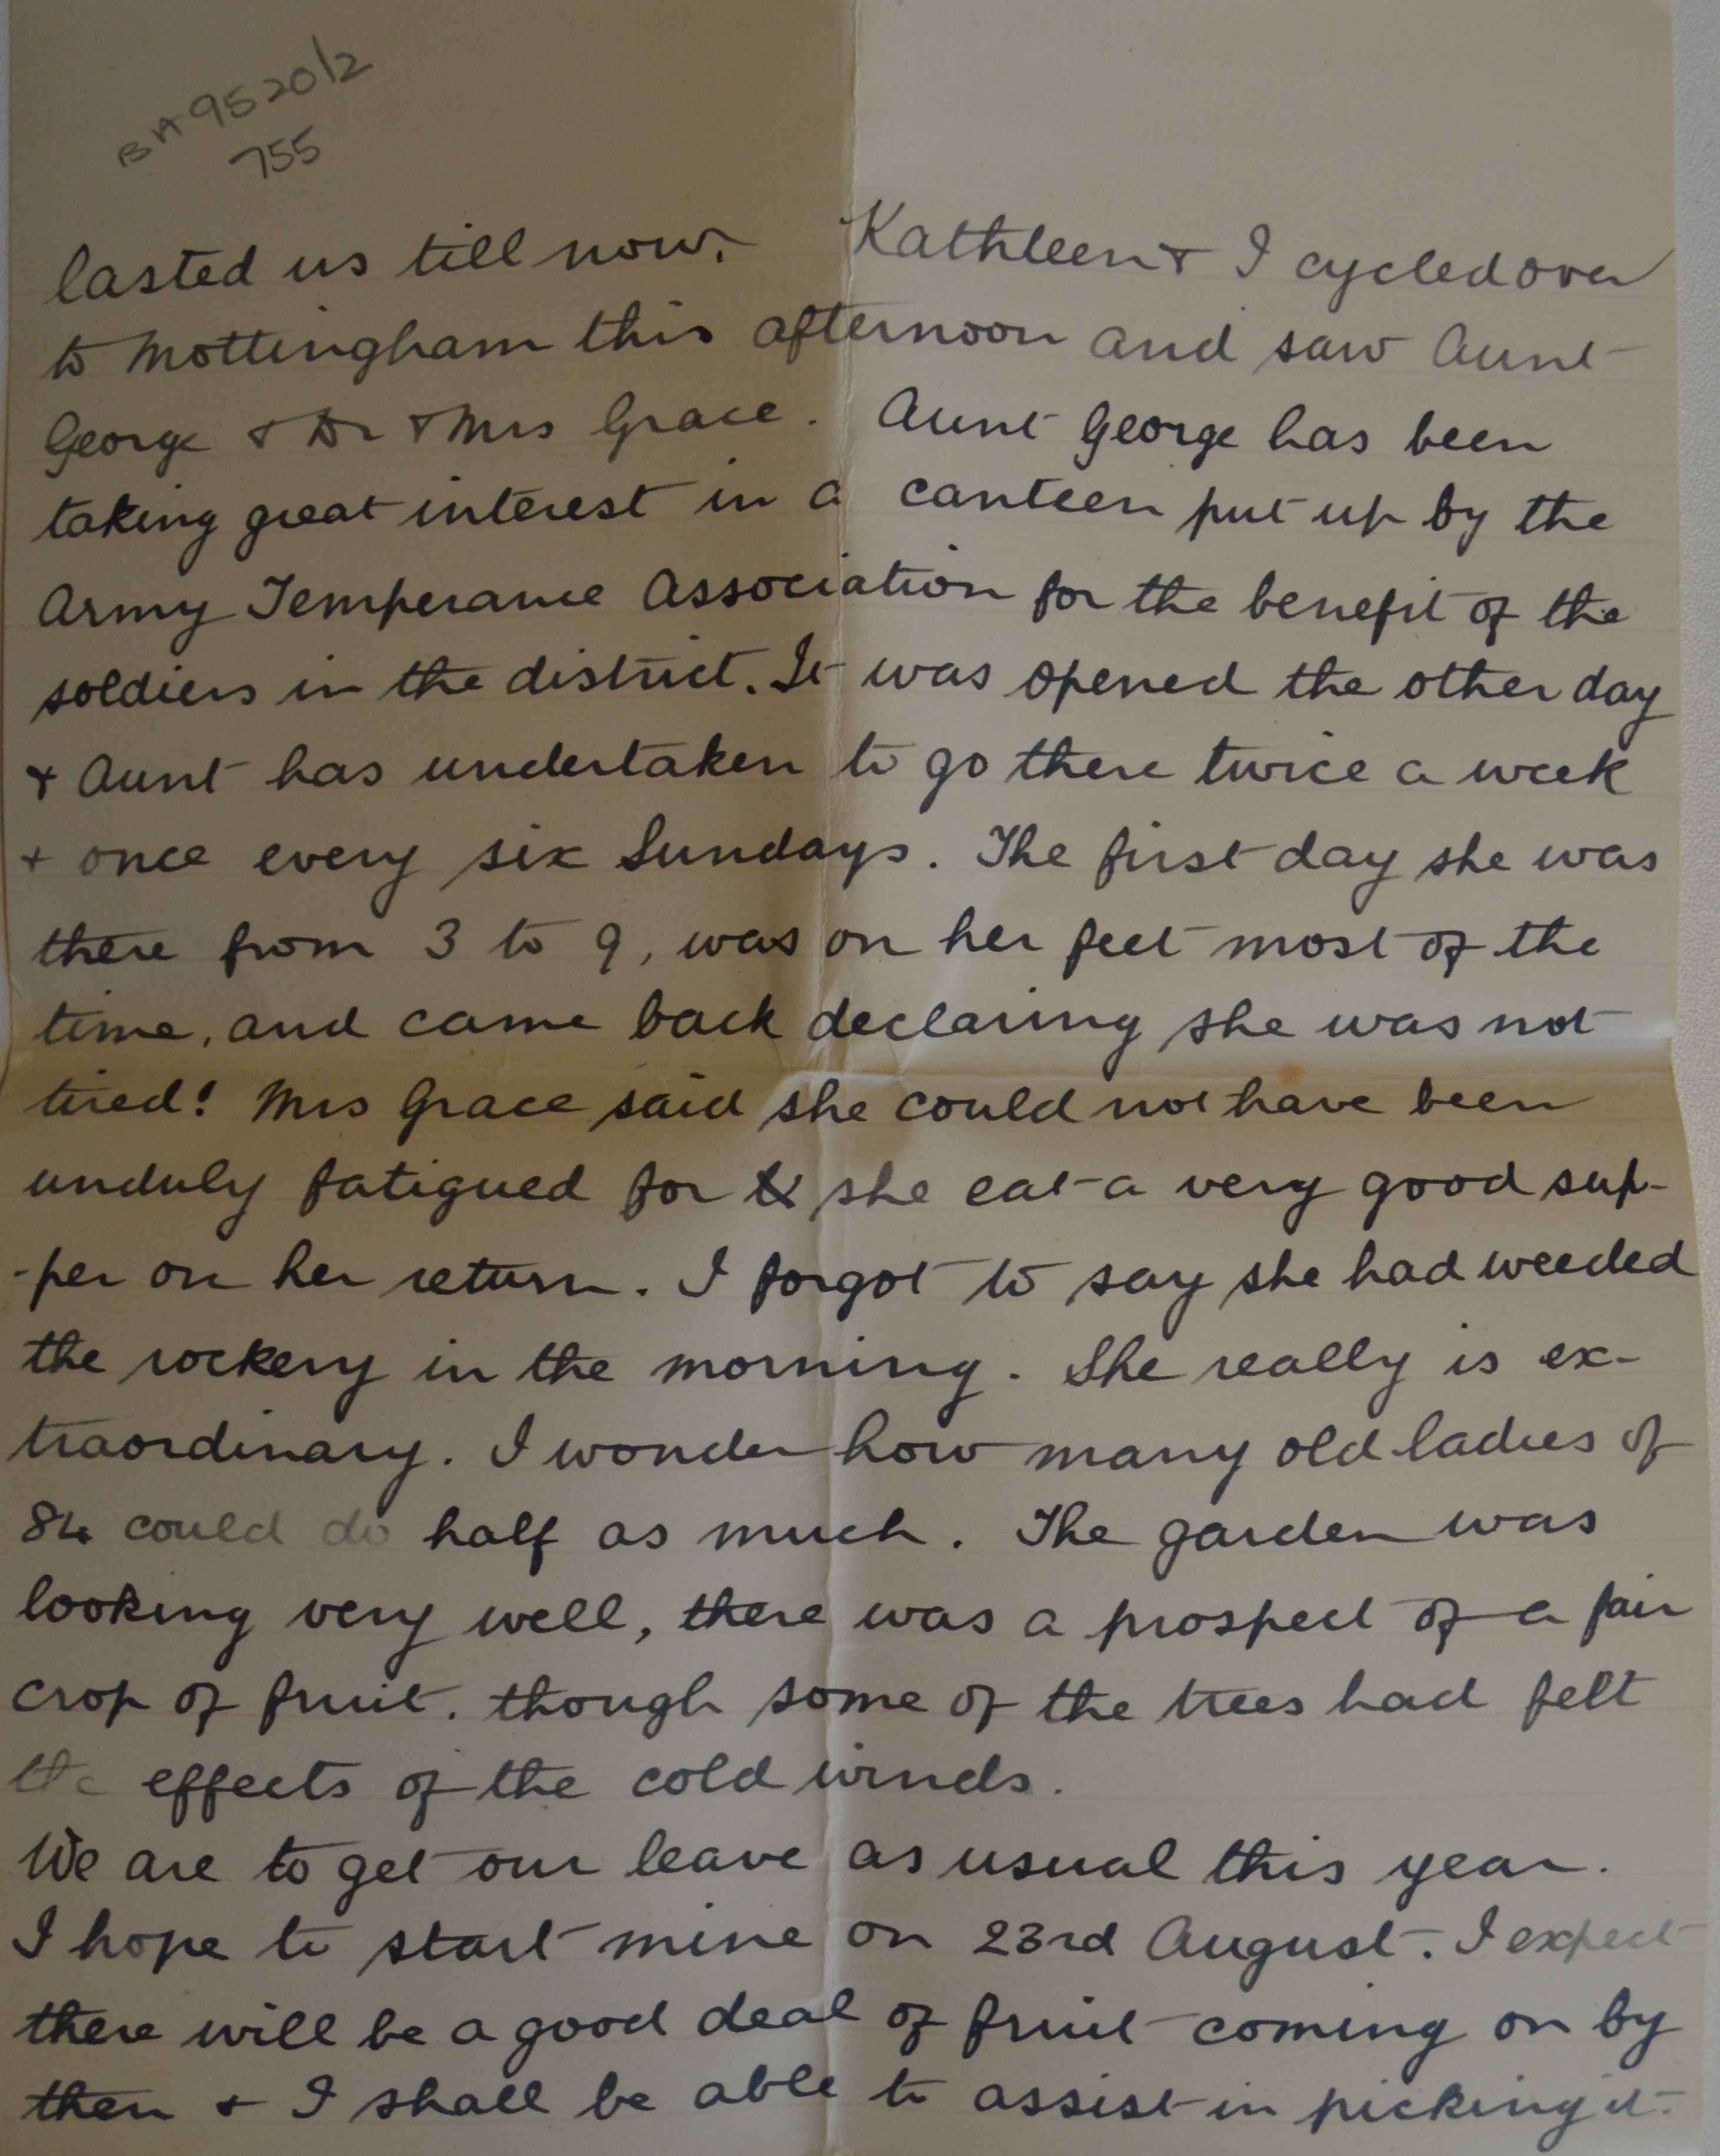 BA 9520/2
755
lasted us till now. Kathleen & I cycled over
to Mottingham this afternoon and saw Aunt
George & Dr & Mrs Grace. Aunt George has been
taking great interest in a canteen put up by the
Army Temperance Association for the benefit of the
soldiers in the district. It was opened the other day
& Aunt has undertaken to go there twice a week
& once every six Sundays. The first day she was
there from 3 to 9, was on her feet most of the
time, and came back declaring she was not
tired! Mrs Grace said she could not have been
unduly fatigued for she eat a very good sup-
-per on her return. I forgot to say she had weeded
the rockery in the morning. She really is ex-
traordinary. I wonder how many old ladies of
84 could do half as much. The garden was
looking very well, there was a prospect of a fair
crop of fruit. though some of the trees had felt
the effects of the cold winds.
We are to get our leave as usual this year.
I hope to start mine on 23rd August. I expect
there will be a good deal of fruit coming on by
then & I shall be able to assist in picking it.